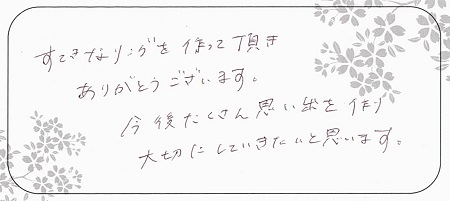 すてきなリングを作って頂き
ありがとうございます。
今後たくさん思い出を作り
大切にしていきたいと思います。